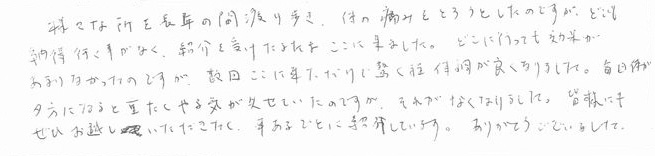 様々な所を長年の間渡り歩き、体の痛みをとろうとしたのですが、どこも
納得行く事がなく、紹介を受けたためここに来ました。どこに行っても効果が
あまりなかったのですが、数回ここに来ただけで驚く程体調が良くなりました。毎日体が
夕方になると重たくやる気が失せていたのですが、それがなくなりました。皆様にも
ぜひお越しいただきたく、事あるごとに紹介しています。ありがとうございました。